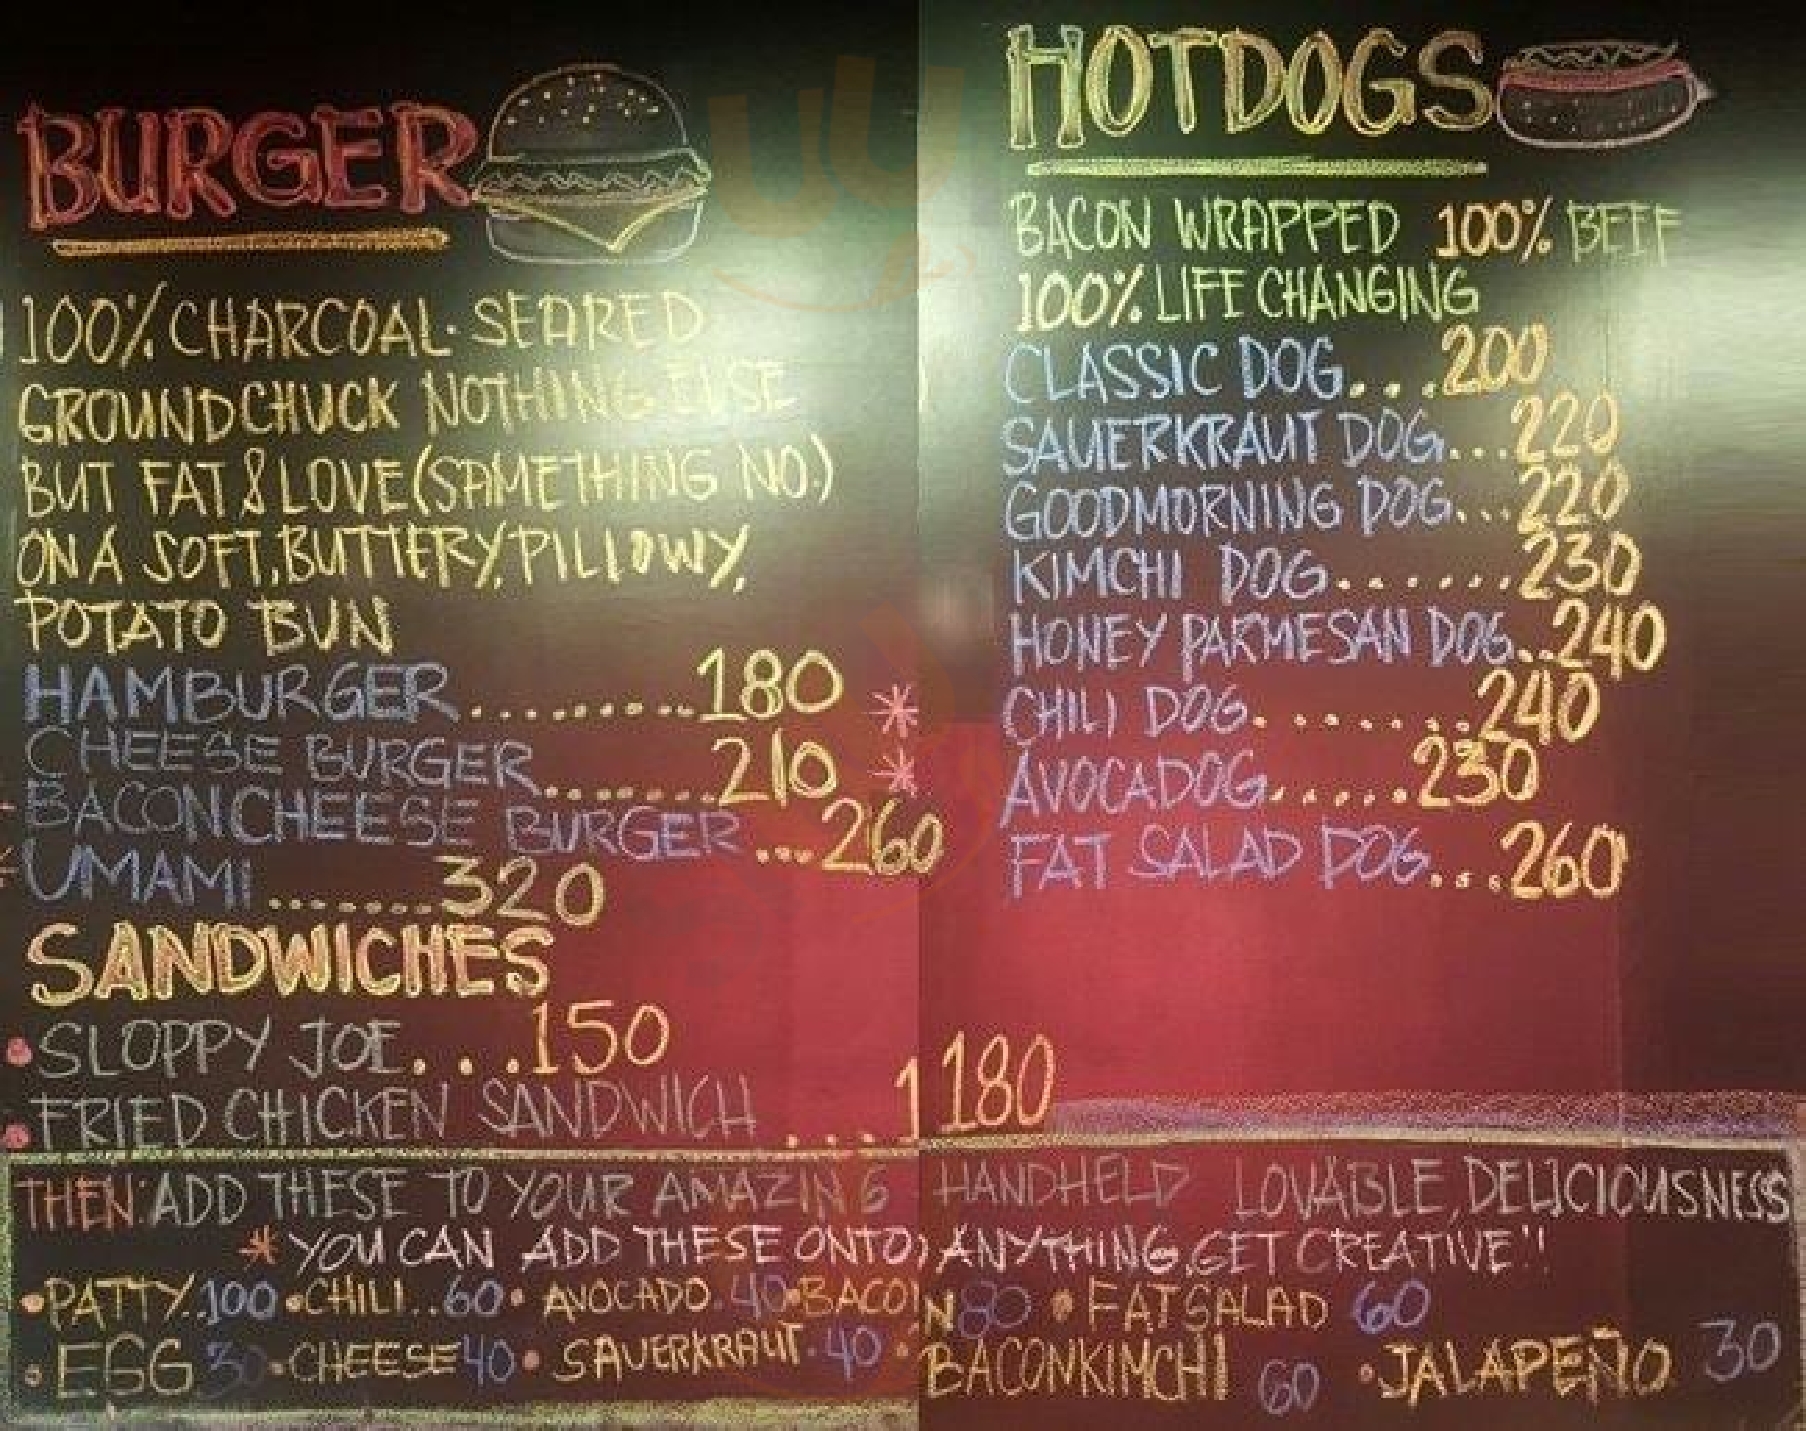 BURGER
100% CHARCOAL-SEARED
GROUNDCHUCK NOTHING ELSE
BUT FAT & LOVE (SAMETHING NO.)
ON A SOFT, BUTTERY, PILLOWY,
POTATO BUN
HAMBURGER.........180
CHEESE BURGER.......210
BACONCHEESE BURGER...260
UMAMI.......320
SANDWICHES
SLOPPY JOE...150
FRIED CHICKEN SANDWICH ...180
HOTDOGS
BACON WRAPPED 100% BEEF
100% LIFE CHANGING
CLASSIC DOG...200
SAUERKRAUT DOG...220
GOODMORNING DOG...220
KIMCHI DOG.......230
HONEY PARMESAN DOG..240
CHILI DOG.......240
AVOCADOG.....230
FAT SALAD DOG...260
THEN: ADD THESE TO YOUR AMAZING HANDHELD LOVABLE, DELICIOUSNESS
* YOU CAN ADD THESE ONTO ANYTHING, GET CREATIVE!!
•PATTY..100 •CHILI..60 • AVOCADO.40 •BACON80 • FATSALAD 60
• EGG 30 •CHEESE40 • SAUERKRAUT.40 • BACONKIMCHI 60 •JALAPEÑO 30